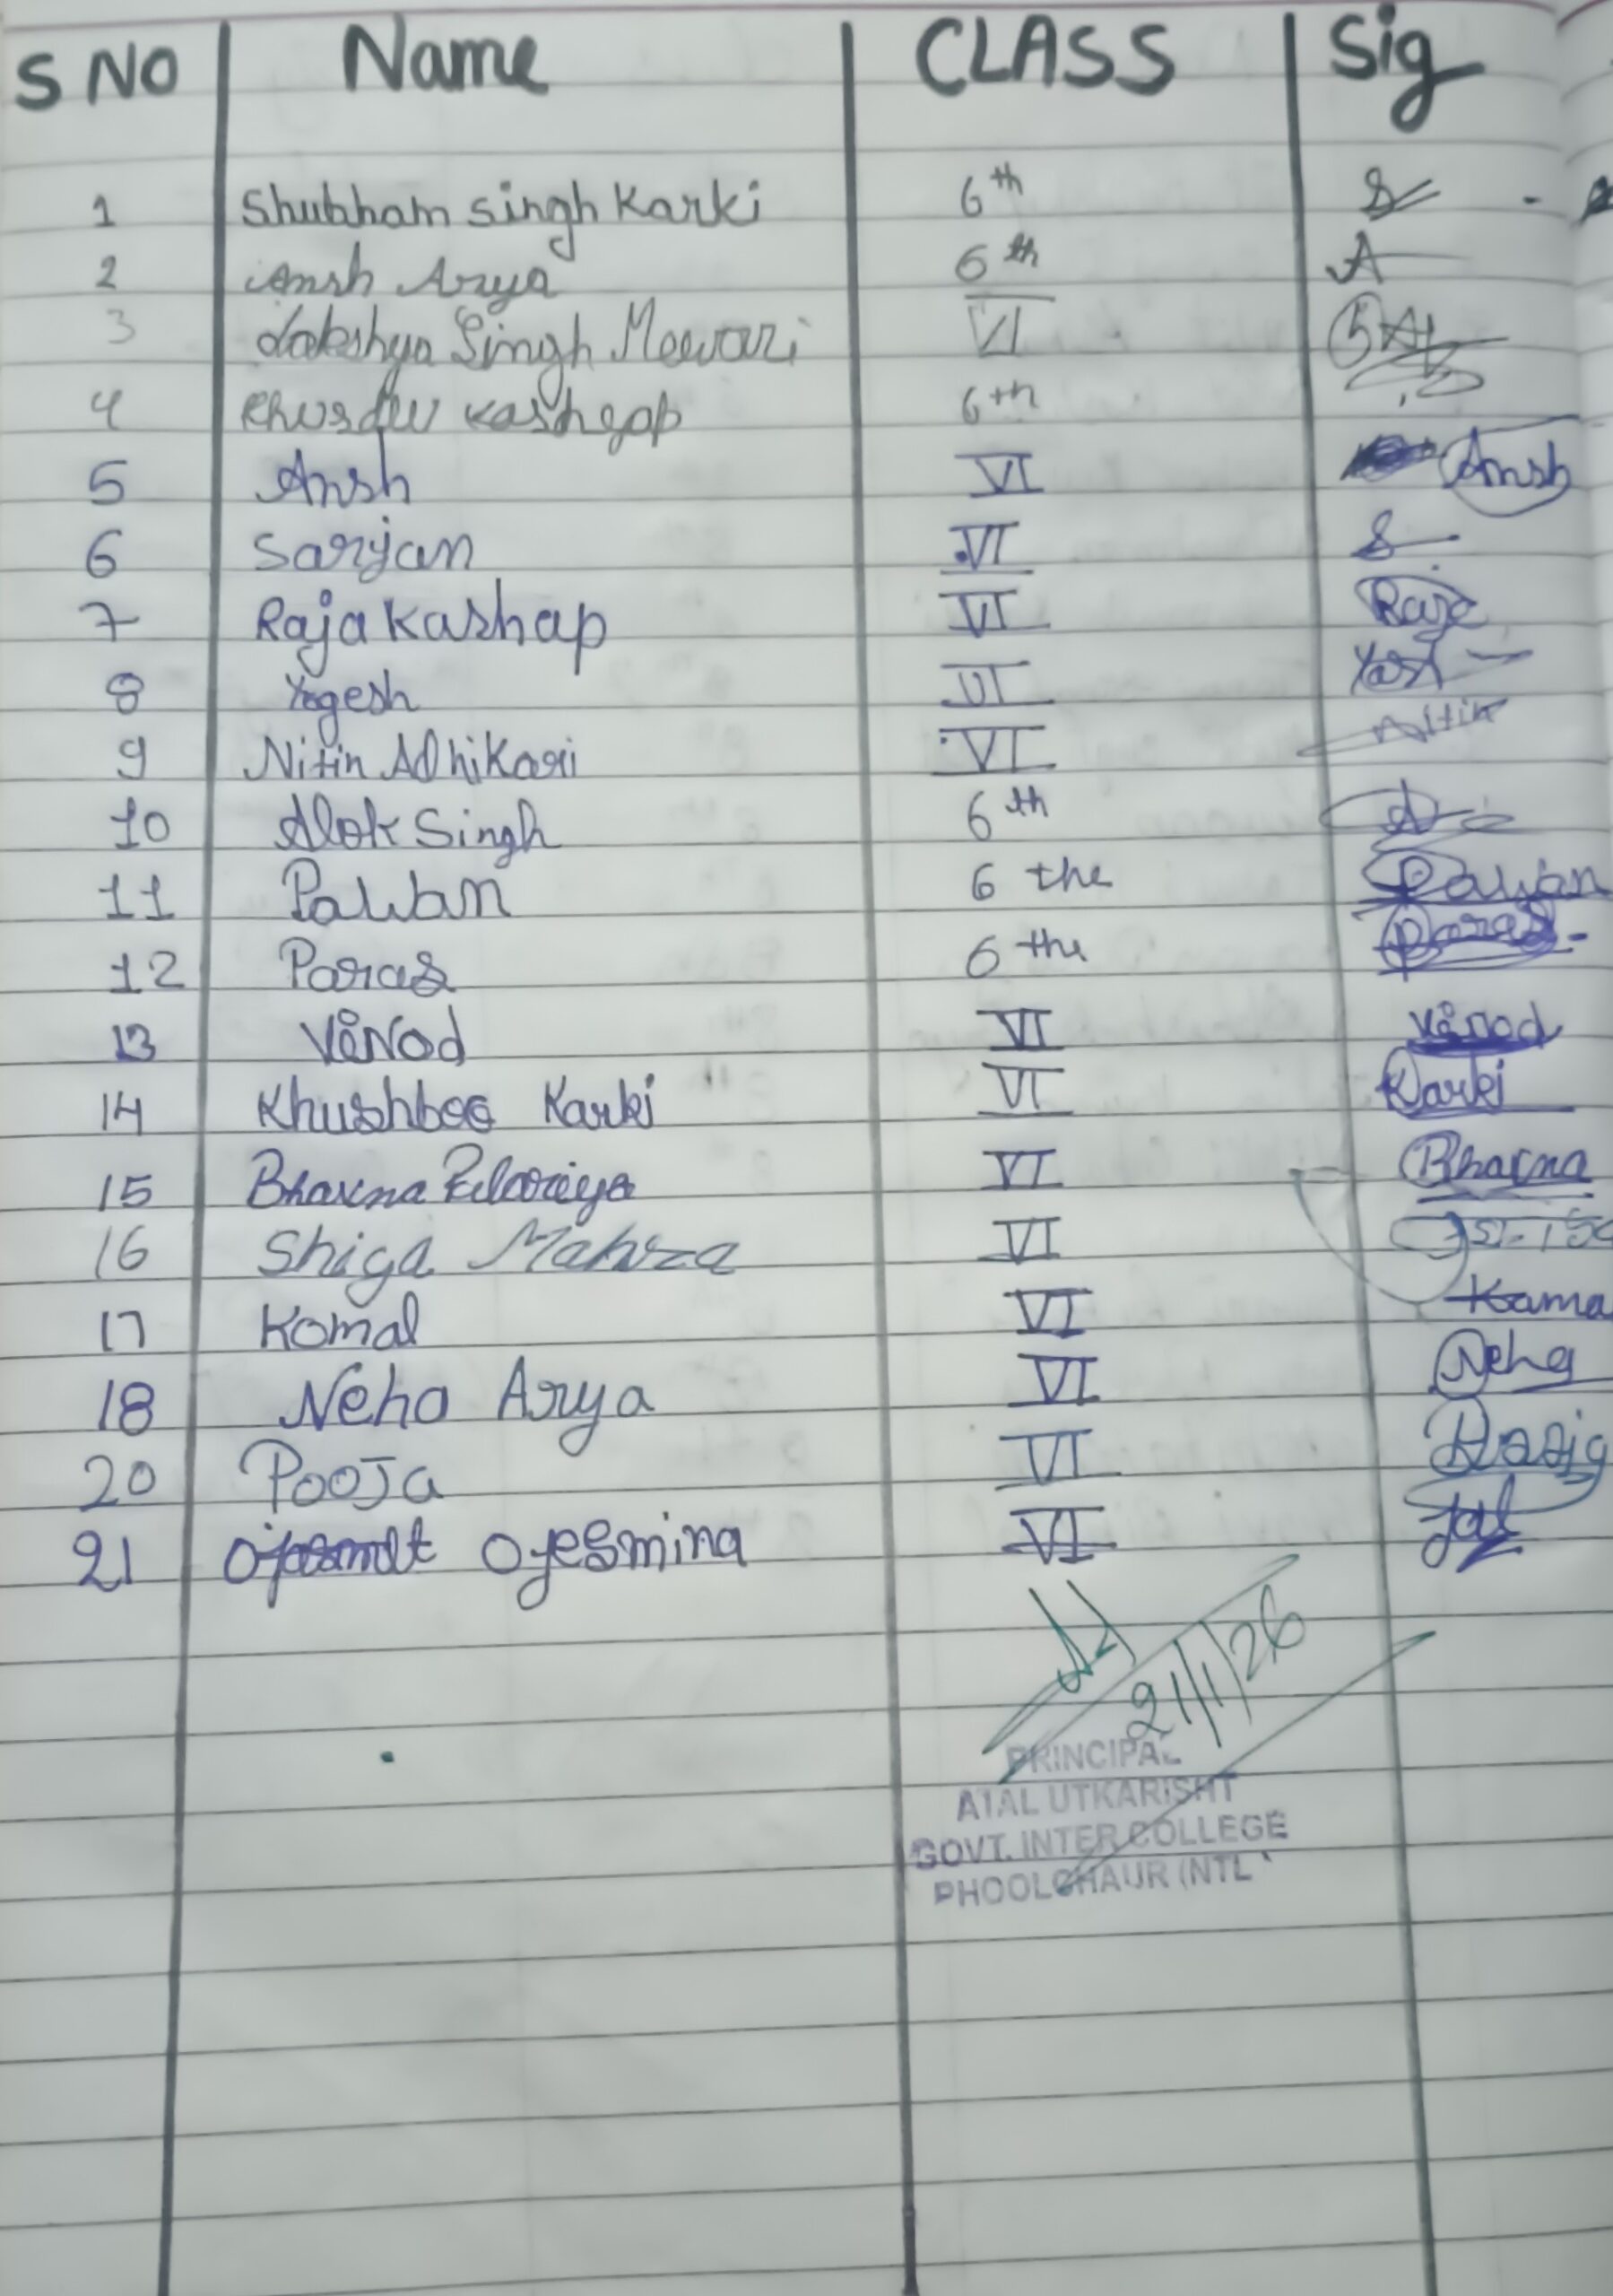 S NO Name CLASS Sig
1 Shubham Singh Karki 6th S
2 Ansh Arya 6th A
3 Lakshya Singh Mewari VI
4 Kashyap 6th
5 Ansh VI Ansh
6 Sarjan VI S
7 Raja Kashap VI Raja
8 Yogesh VI
9 Nitin Adhikari VI Nitin
10 Alok Singh 6th A
11 Pawan 6 the Pawan
12 Paras 6 the Paras
13 Vinod VI Vinod
14 Khushboo Karki VI Karki
15 Bhavna VI Bhavna
16 Mahra VI
17 Komal VI Kama
18 Neha Arya VI Neha
20 Pooja VI
21 Ojesmina VI
21/1/26
PRINCIPAL
ATAL UTKARISHT
GOVT. INTER COLLEGE
PHOOLCHAUR (NTL